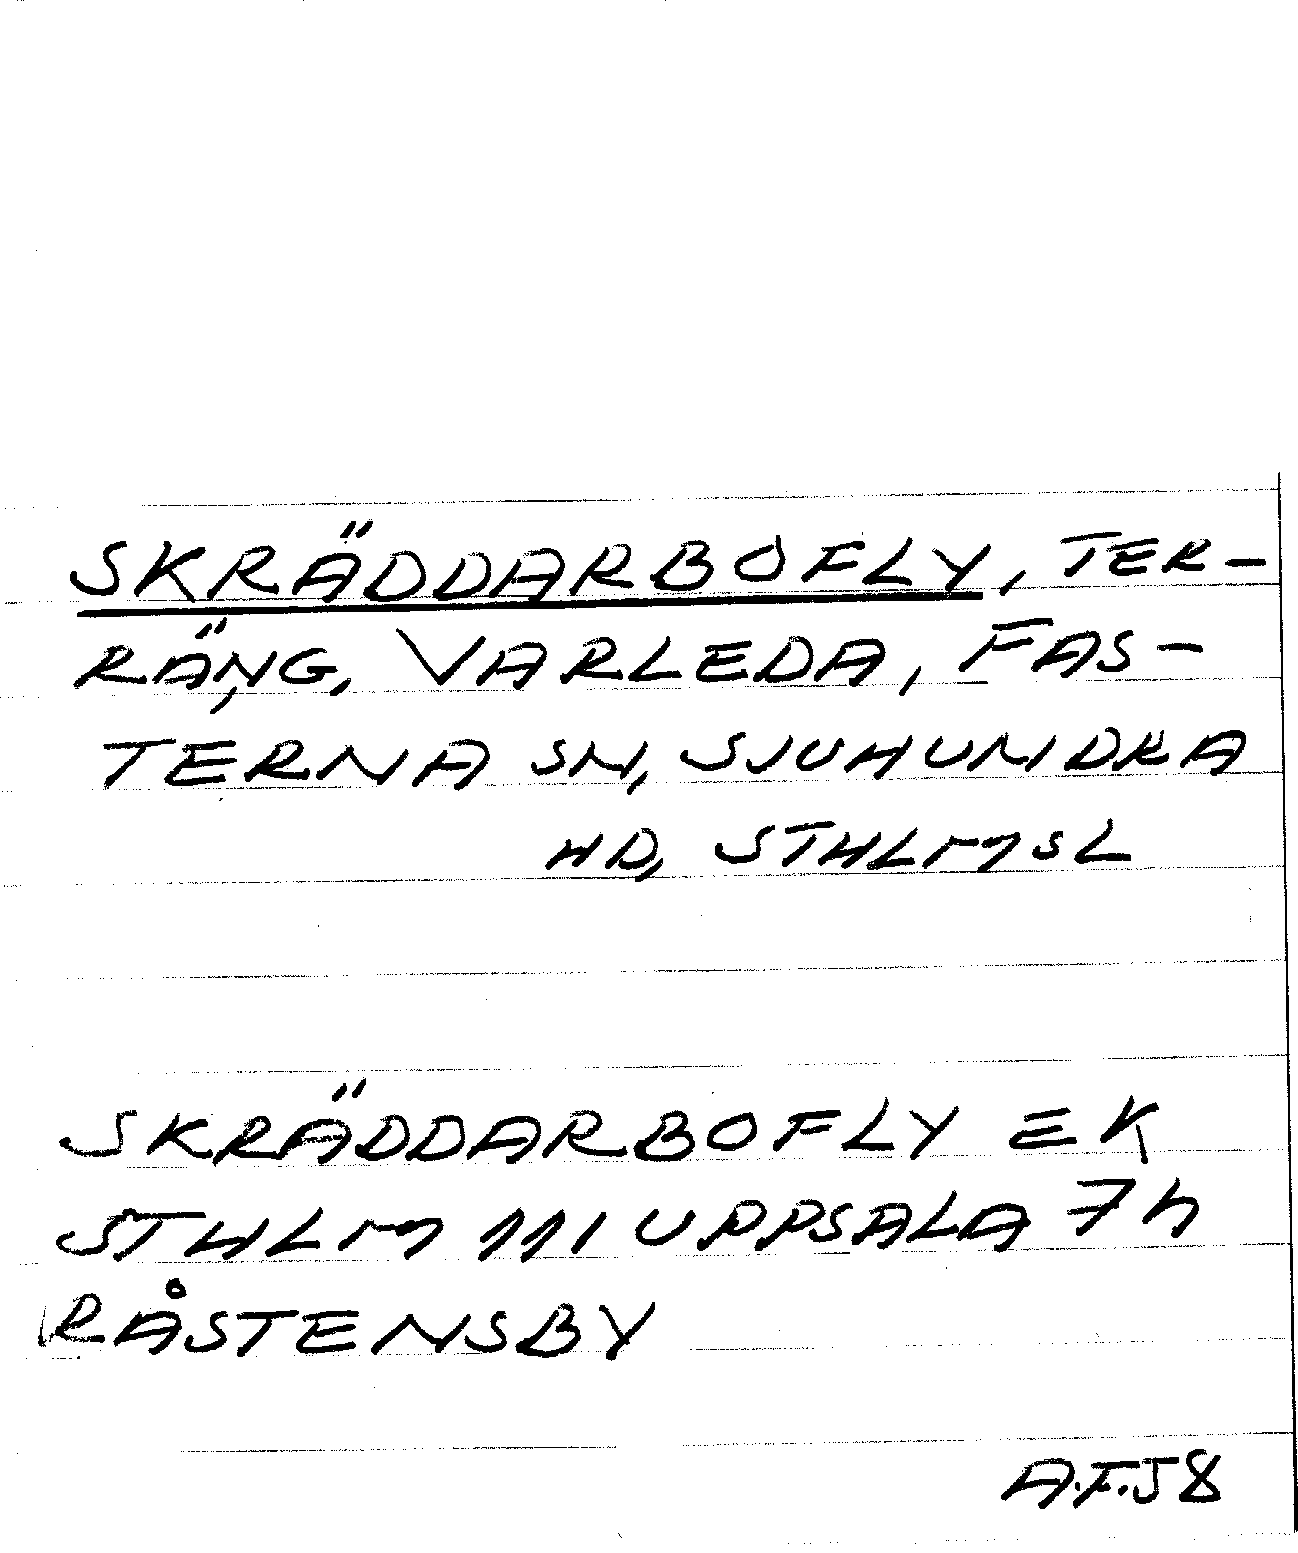 SKRÄDDARBOFLY, TER-
RÄNG, VARLEDA, FAS-
TERNA SN, SJUHUNDRA
HD, STHLMSL
SKRÄDDARBOFLY EK
STHLM 111 UPPSALA 7h
RÅSTENSBY
A.F.J8